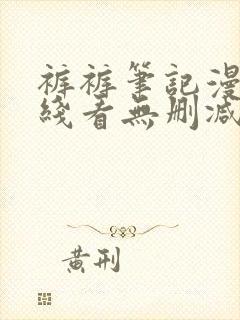 裤裤筆記漫
綫看無删减
黄刑